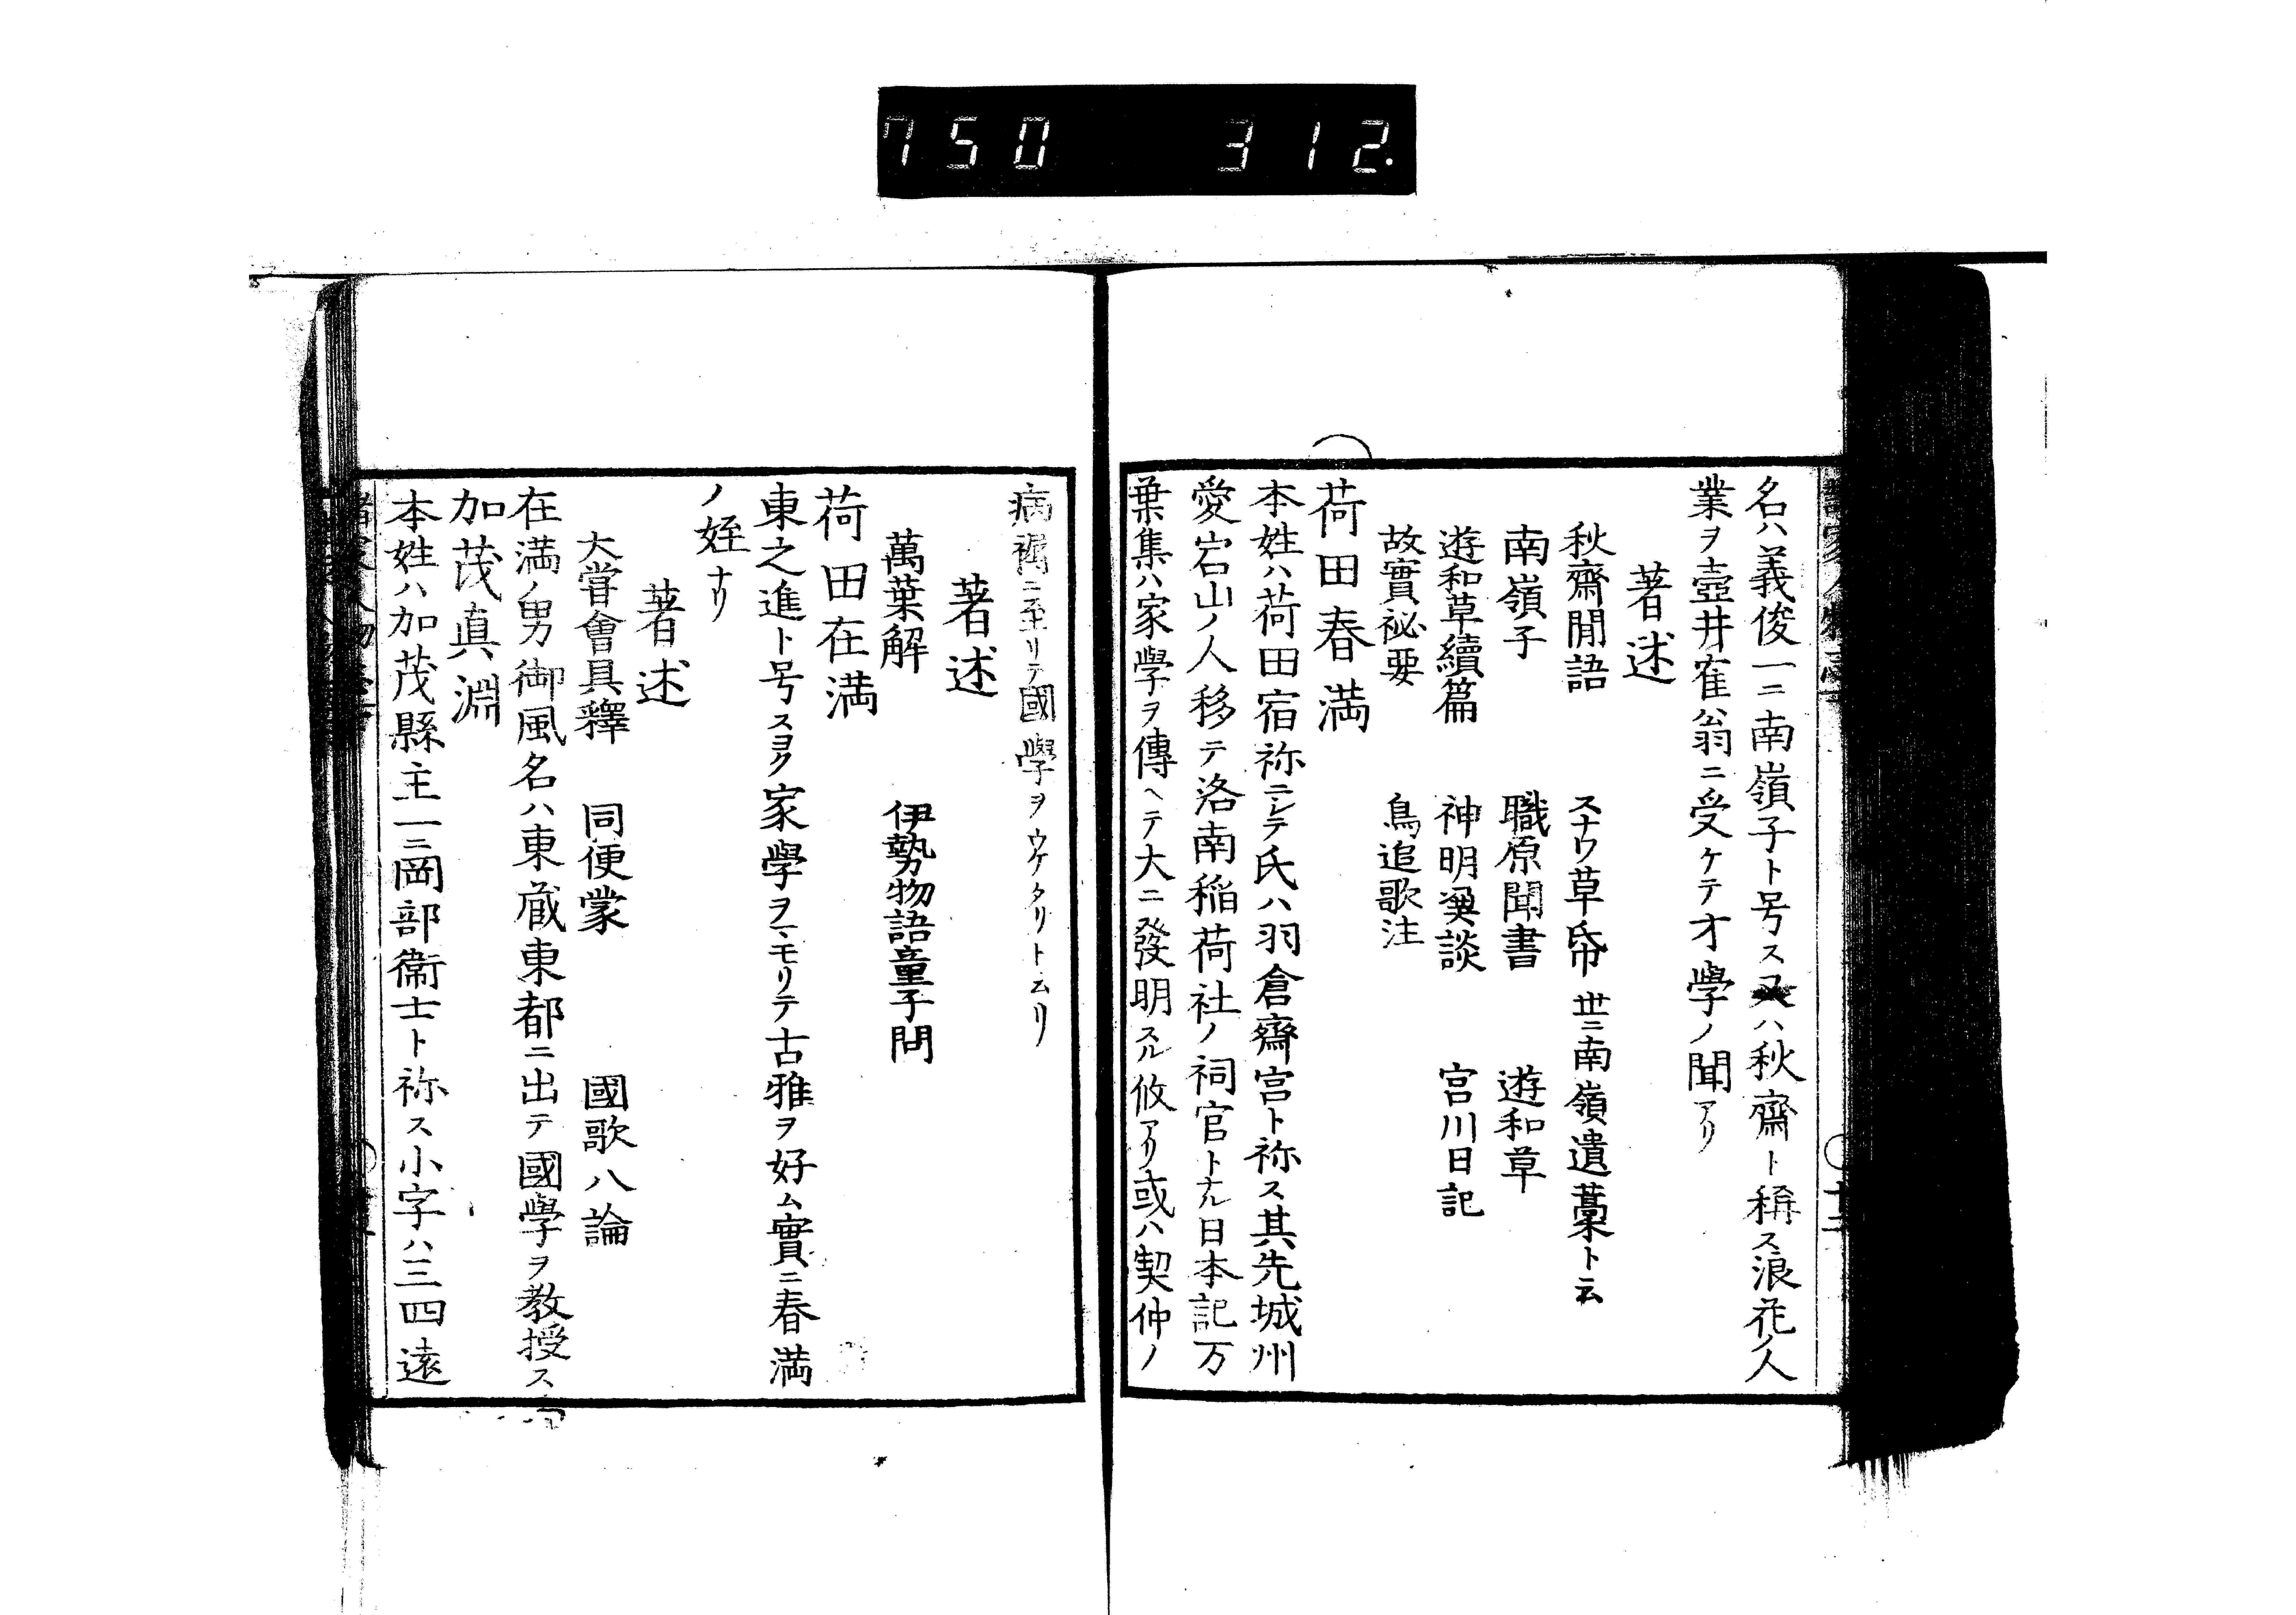 750 312.
名ハ義俊一ニ南嶺子ト号ス又ハ秋齋ト稱ス浪花ノ人
業ヲ壺井寉翁ニ受ケテオ學ノ聞アリ
著述
秋齋閒語 スナワ草帋 世ニ南嶺遺藁ト云
南嶺子 職原聞書 遊和草
遊和草續篇 神明 談 宮川日記
故實祕要 鳥追歌注
荷田春満
本姓ハ荷田宿祢ニシテ氏ハ羽倉齋宮ト祢ス其先城州
愛宕山ノ人移テ洛南稲荷社ノ祠官トナル日本記万
葉集ハ家學ヲ傳ヘテ大ニ發明スル攸アリ或ハ契仲ノ
病褥ニ至リテ國學ヲウケタリト云リ
著述
萬葉解 伊勢物語童子問
荷田在満
東之進ト号スヨク家學ヲマモリテ古雅ヲ好ム實ニ春満
ノ姪ナリ
著述
大嘗會具釋 同便蒙 國歌八論
在満ノ男御風名ハ東蔵東都ニ出テ國學ヲ教授ス
加茂真淵
本姓ハ加茂縣主一ニ岡部衞士ト祢ス小字ハ三四遠